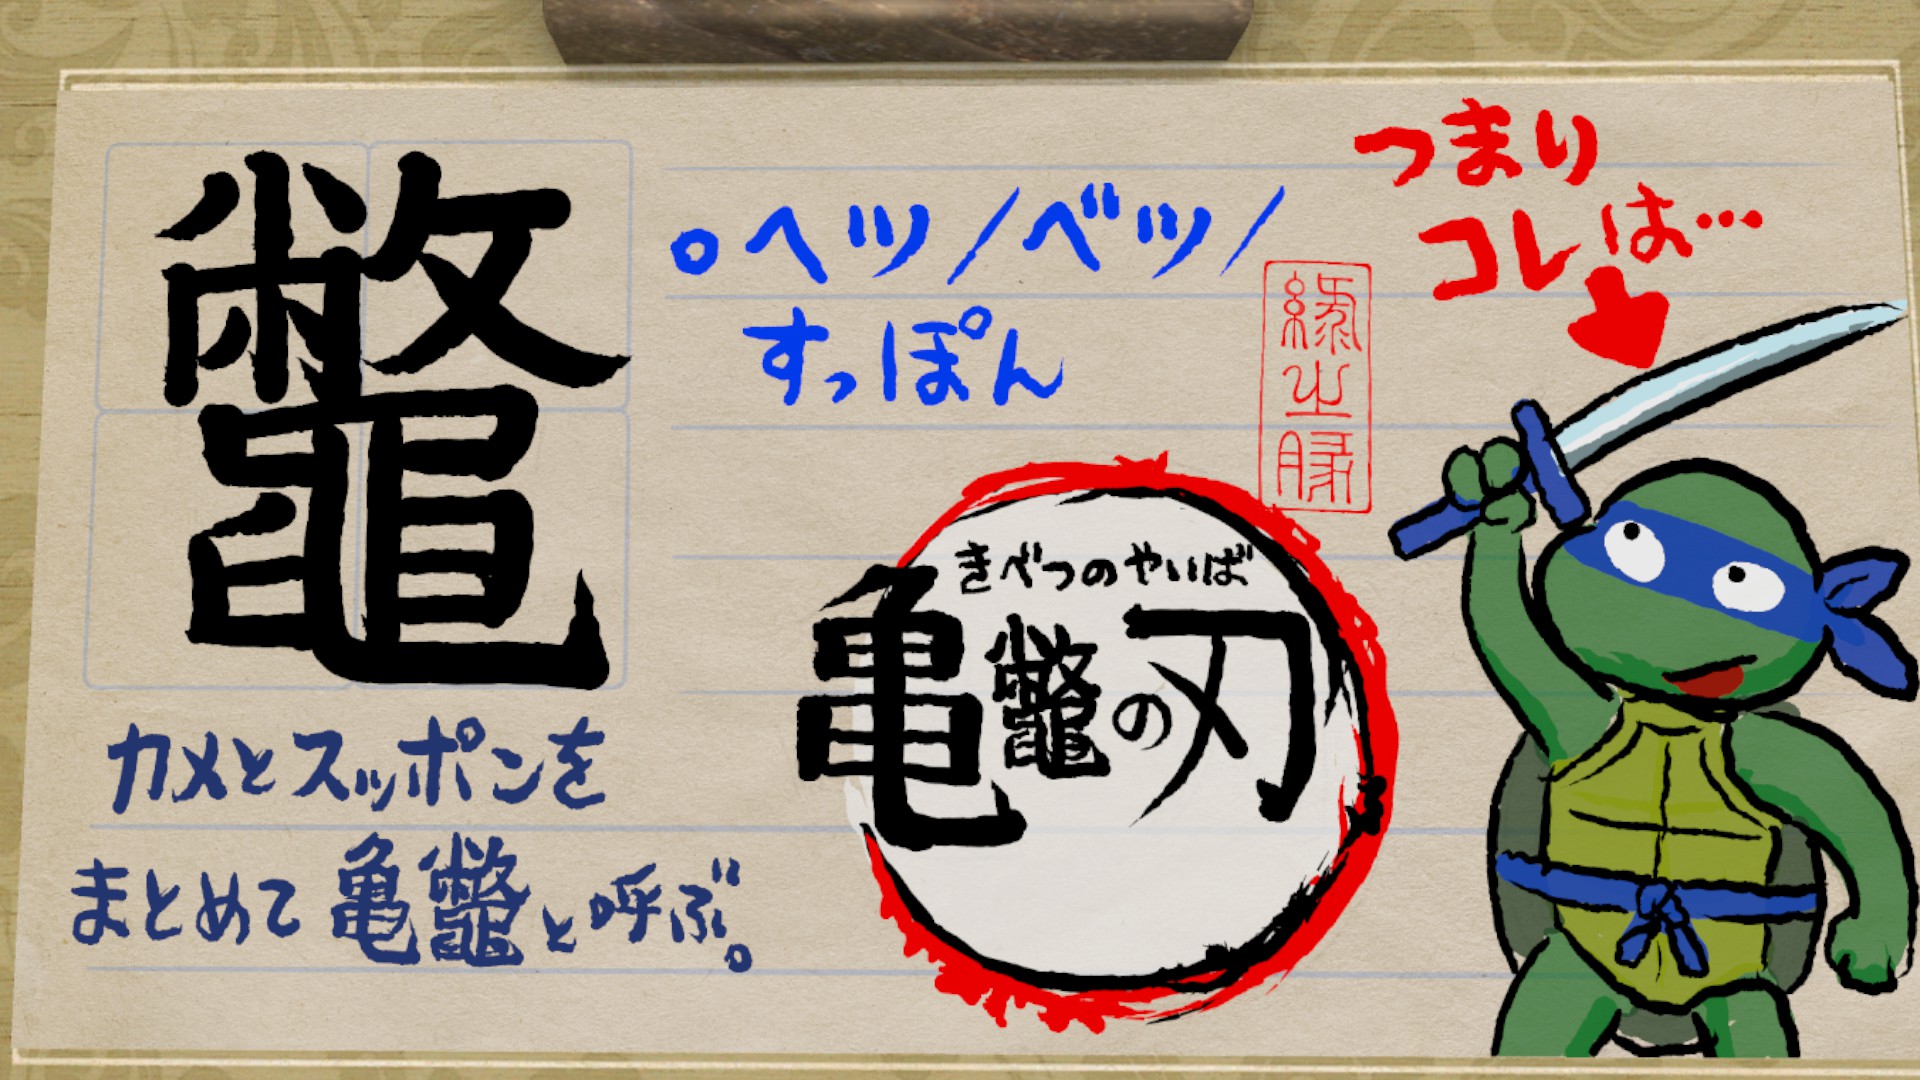 鼈
。ヘツ/ベツ/
すっぽん
つまり
コレは…
きべつのやいば
亀鼈の刃
カメとスッポンを
まとめて亀鼈と呼ぶ。